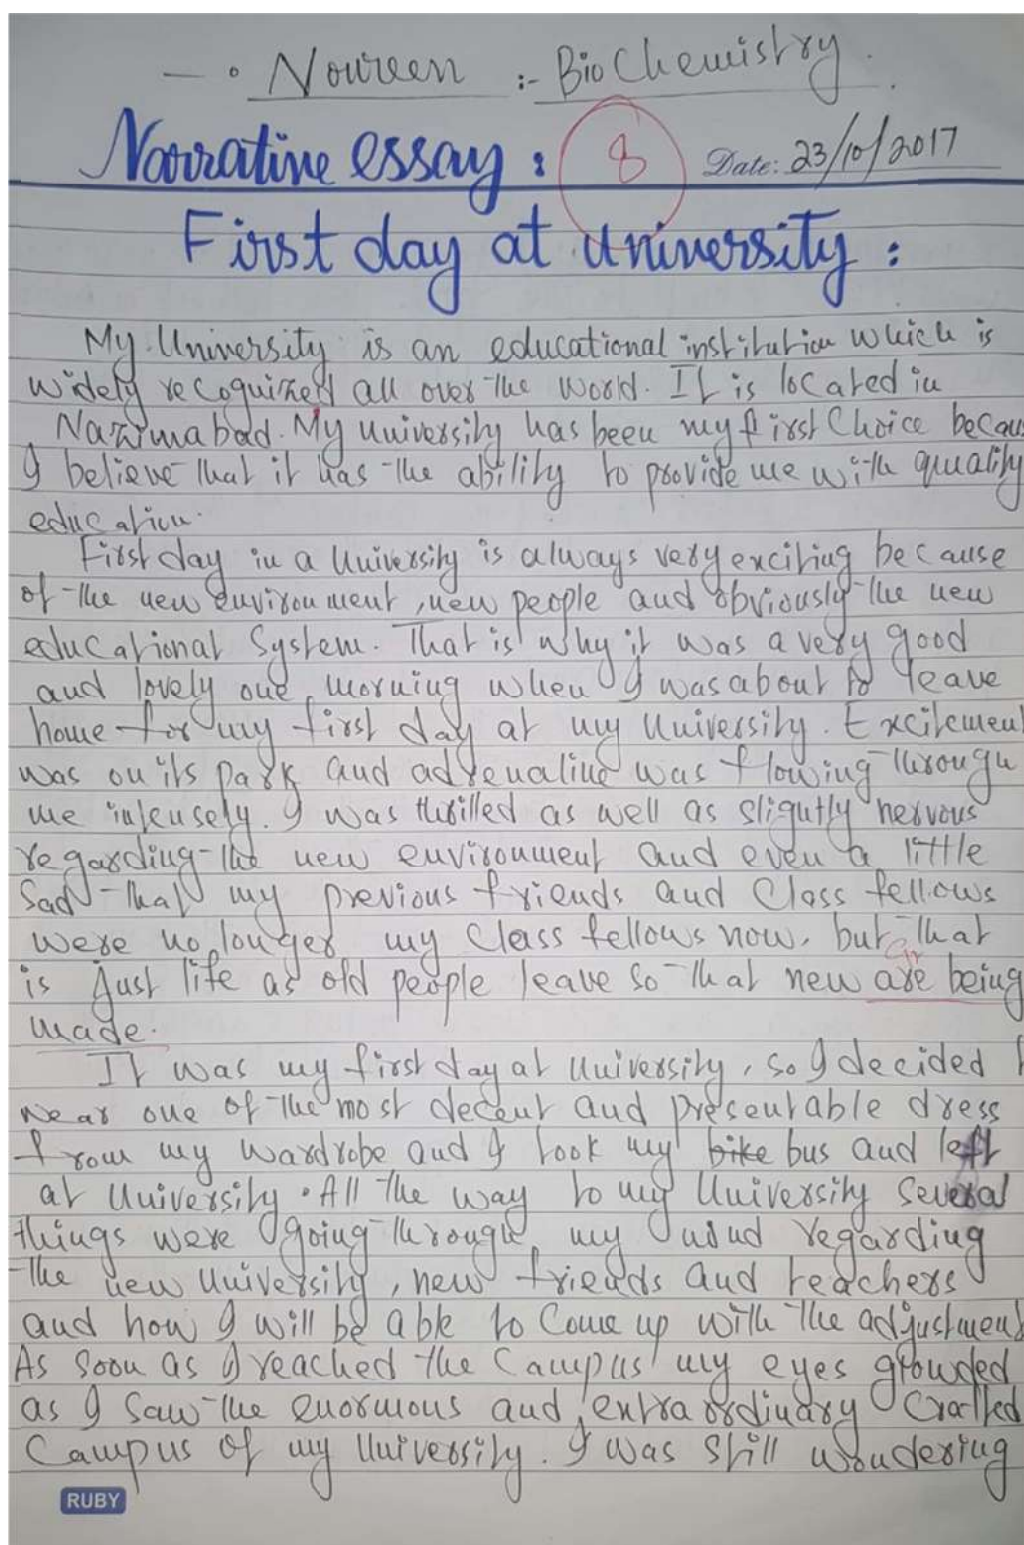 — • Noureen :- BioChemistry.
Narrative essay : 8 Date: 23/10/2017
First day at university :
My University is an educational institution which is
widely recoguized all over the world. It is located in
Nazimabad. My university has been my first Choice becaus
I believe that it has the ability to provide me with quality
education.
First day in a University is always very exciting because
of the new environment, new people and obviously the new
educational System. That is why it was a very good
and lovely one morning when I was about to leave
home for my first day at my University. Excitement
was on its park and adrenaline was flowing through
me intensely. I was thrilled as well as sligutly nervous
regarding the new environment and even a little
Sad that my previous friends and Class fellows
were no longer my Class fellows now, but that
is just life as old people leave so that new are being
made.
It was my first day at University, so I decided t
wear one of the most decent and presentable dress
from my wardrobe and I took my bike bus and left
at University. All the way to my University several
things were going through my mind regarding
the new University, new friends and teachers
and how I will be able to Come up with the adjustment
As soon as I reached the Campus my eyes grouded
as I saw the enormous and extraordinary Crafted
Campus of my University. I was still wondering
RUBY